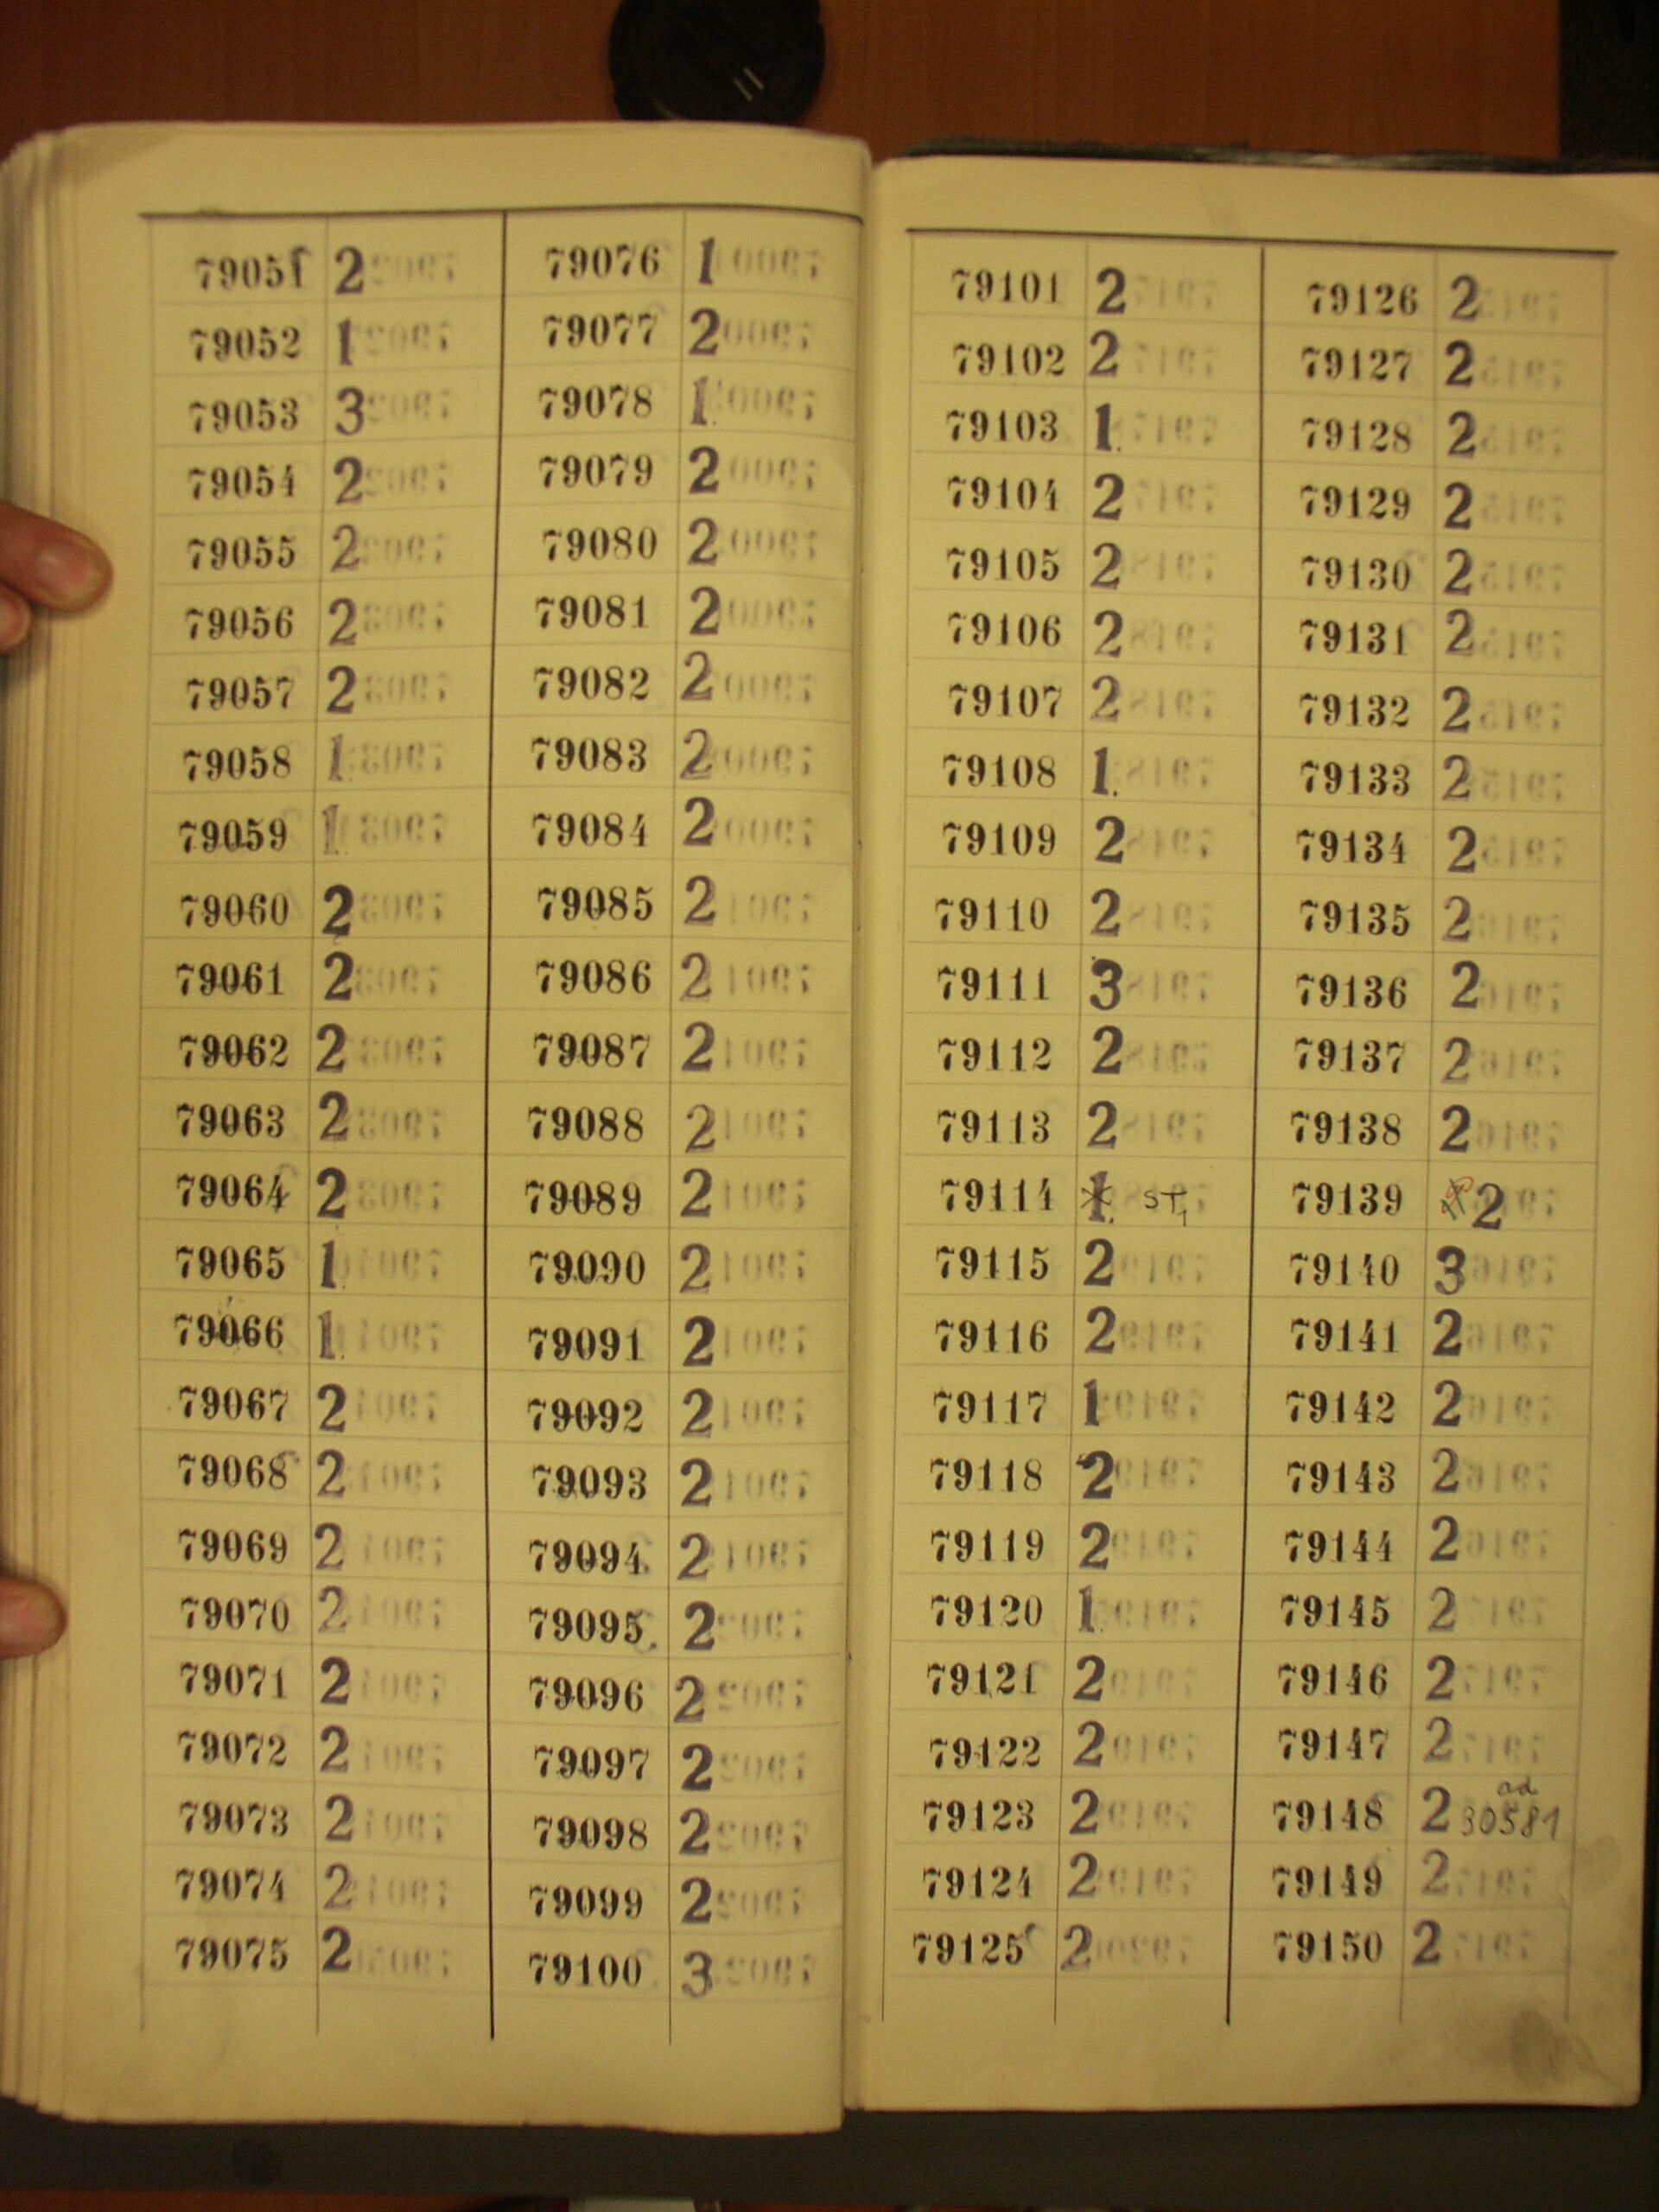 79051 2
79052 1
79053 3
79054 2
79055 2
79056 2
79057 2
79058 1.
79059 1.
79060 2
79061 2
79062 2
79063 2
79064 2
79065 1.
79066 1.
79067 2
79068 2
79069 2
79070 2
79071 2
79072 2
79073 2
79074 2
79075 2
79076 1
79077 2
79078 1.
79079 2
79080 2
79081 2
79082 2
79083 2
79084 2
79085 2
79086 2
79087 2
79088 2
79089 2
79090 2
79091 2
79092 2
79093 2
79094 2
79095 2
79096 2
79097 2
79098 2
79099 2
79100 3
79101 2
79102 2
79103 1.
79104 2
79105 2
79106 2
79107 2
79108 1.
79109 2
79110 2
79111 3
79112 2
79113 2
79114 1. ST,
79115 2
79116 2
79117 1
79118 2
79119 2
79120 1.
79121 2
79122 2
79123 2
79124 2
79125 2
79126 2
79127 2
79128 2
79129 2
79130 2
79131 2
79132 2
79133 2
79134 2
79135 2
79136 2
79137 2
79138 2
79139 2
79140 3
79141 2
79142 2
79143 2
79144 2
79145 2
79146 2
79147 2
79148 2 ad 30581
79149 2
79150 2